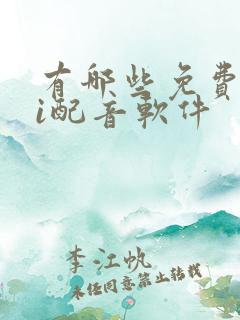 有哪些免費
i配音軟件
李江帆
未经同意禁止转载